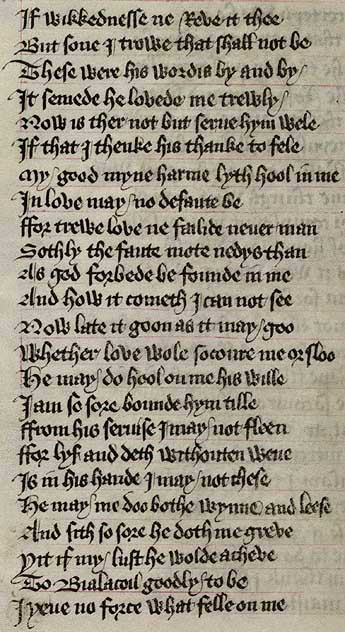 If wikkednesse ne Reve it thee
But sone I trowe that shall not be
These were his wordis by and by
It semede he lovede me trewly
Now is ther not but serve hym wele
If that I thenke his thanke to fele
My good myne harme lyth hool in me
In love may no defaute be
ffor trewe love ne failide never man
Sothly the faute mote nedys than
As god forbede be founde in me
And how it cometh I can not see
Now late it goon as it may goo
Whether love wole socoure me or sloo
He may do hool on me his wille
I am so sore bounde hym tille
ffrom his servise I may not fleen
ffor lyf and deth withouten wene
Is in his hande I may not chese
He may me doo bothe wynne and leese
And sith so sore he doth me greve
Yit if my lust he wolde acheve
To Bialacoil goodly to be
I yeve no force what felle on me